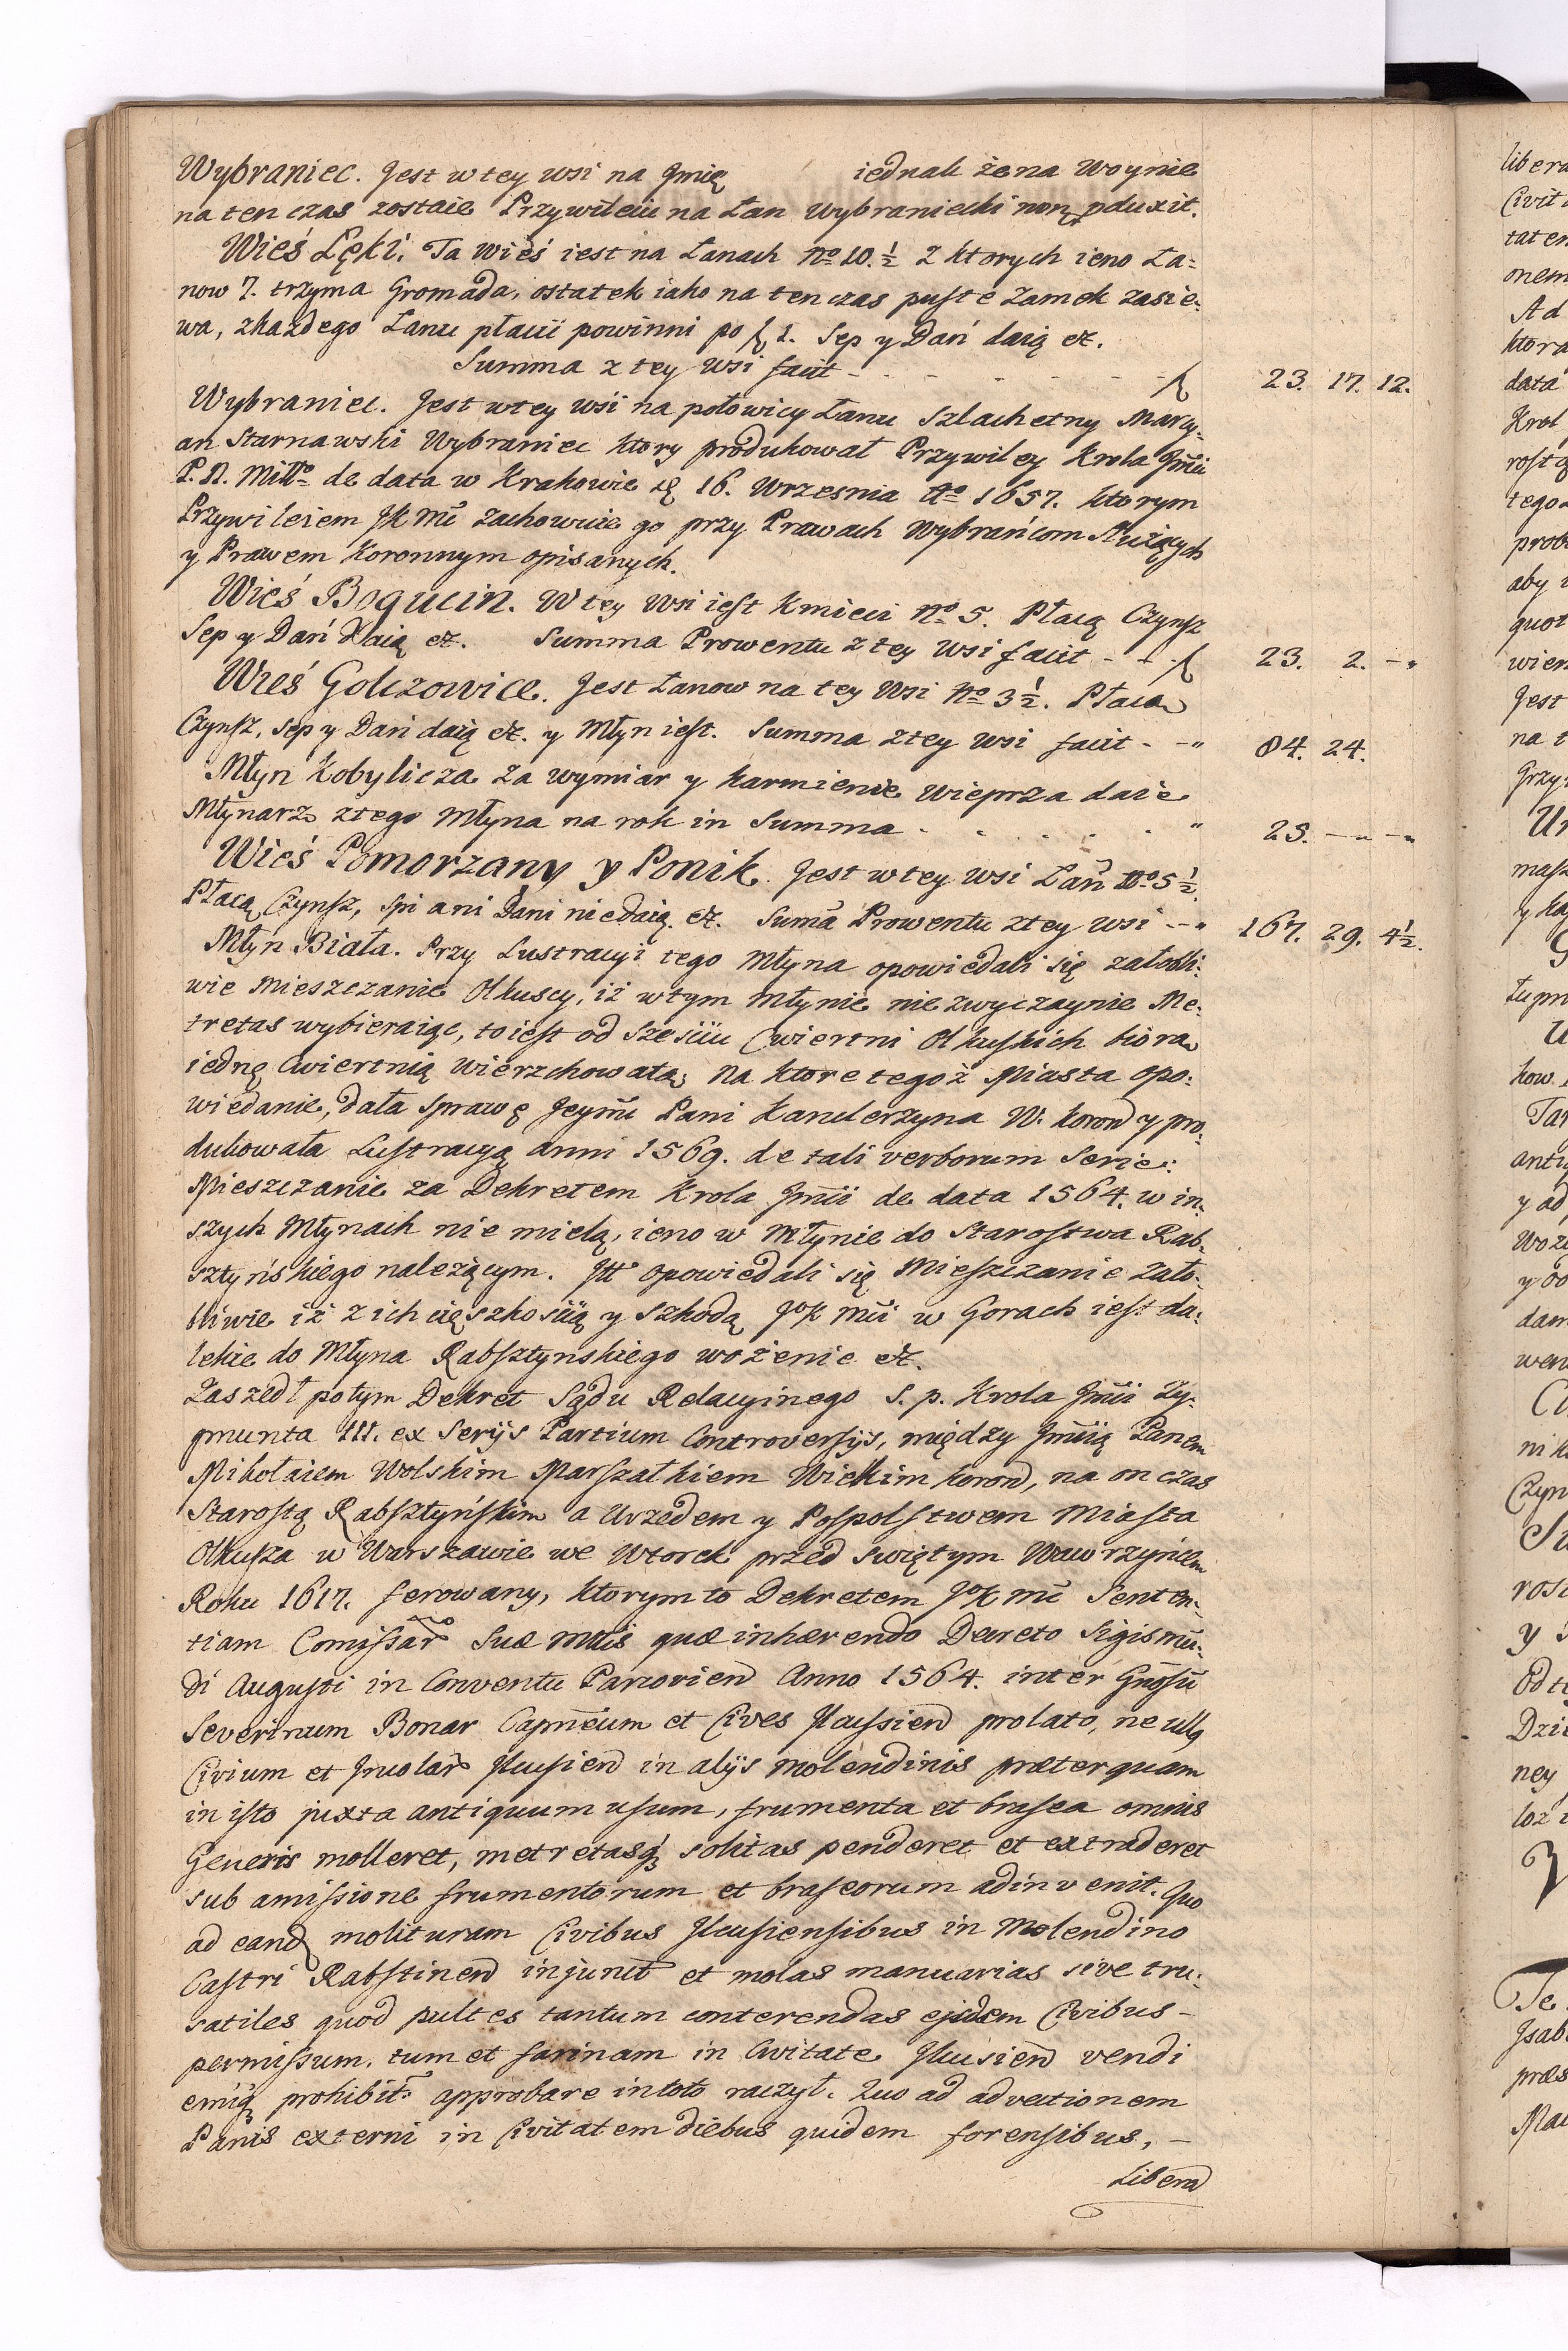 Wybraniec. Jest w tey wsi na Jmię iednak że na Woynie
na ten czas zostaie Przywileiu na Łan Wybraniecki non pduxit.
Wieś Łęki. Ta Wieś iest na Łanach No 10. ½ z ktorych ieno Ła-
now 7. trzyma Gromada, ostatek iako na ten czas puste Zamek zasie-
wa, z każdego Łanu płacić powinni po f 1. Sep y Dań daią etc.
Summa z tey wsi facit - - - - - - f 23. 17. 12.
Wybraniec. Jest w tey wsi na połowicy Łanu Szlachetny Marcy-
an Starnawski Wybraniec ktory produkował Przywiley Krola Jmci
P. N. Miłło de data w Krakowie 16. Wrzesnia Ao 1657. ktorym
Przywileiem JK Mć zachowuie go przy Prawach Wybrańcom służących
y Prawem Koronnym opisanych.
Wieś Bogucin. W tey Wsi iest Kmieci No 5. Płacą Czynsz
Sep y Dań daią etc. Summa Prowentu z tey Wsi facit - - f 23. 2. -
Wieś Golczowice. Jest Łanow na tey Wsi No 3½. Płacą
Czynsz, sep y Dań daią etc. y Młyn iest. Summa z tey wsi facit - - " 84. 24.
Młyn Kobylicza za wymiar y karmienie wieprza daie
Młynarz z tego Młyna na rok in Summa - - - - - " 28. - -
Wieś Pomorzany y Ponik. Jest w tey wsi Łan No 5½.
Płacą Czynsz, spi ani Dani nie daią etc. Suma Prowentu z tey wsi - - " 167. 29. 4½.
Młyn Biała. Przy Lustracyi tego Młyna opowiedali się załobli-
wie Mieszczanie Olkuscy, iż w tym Młynie niezwyczaynie Me-
tretas wybieraiąc, to iest od szesciu Cwiertni Olkuskich biorą
iednę Cwiertnią wierzchowatą, na ktore tegoż Miasta opo-
wiedanie, dała sprawę Jeymć Pani Kanclerzyna W. koron y pro-
dukowała Lustracyą anni 1569. de tali verborum serie:
Mieszczanie za Dekretem Krola Jmci de data 1564. w in-
szych Młynach nie mielą, ieno w Młynie do Starostwa Rab-
sztyńskiego należącym. Itt opowiedali się Mieszczanie zało-
bliwie iż z ich cięszkoscią y szkodą JoK Mći w Gorach iest da-
lekie do Młyna Rabsztynskiego wożenie etc.
Zaszedł potym Dekret Sądu Relacyinego s. p. Krola Jmci Zy-
gmunta III. ex serijs Partium Controversijs, między Jmcią Panem
Mikołaiem Wolskim Marszałkiem Wielkim koron, na on czas
Starostą Rabsztyńskim a Urzedem y Pospolstwem Miasta
Olkusza w Warszawie we Wtorek przed swiętym Wawrzyńcem
Roku 1617. ferowany, ktorym to Dekretem JoK Mć Senten-
tiam Comissar Suæ Mtis quæ inhærendo Decreto Sigismu-
di Augusti in Conventu Parzovien Anno 1564. inter Gnosu
Severinum Bonar Capneum et Cives Ilcussien prolato, ne ullq
Civium et Incolar Ilcusien in alijs molendinis præterquam
in isto juxta antiquum usum, frumenta et brasea omnis
Generis molleret, metretasq solitas penderet et extraderet
sub amissione frumentorum et braseorum adinvenit. Quo
ad eand molituram Civibus Ilcusiensibus in Molendino
Castri Rabstinen injunct et molas manuarias sive tru-
satiles quod pultes tantum conterendas ejsdem Civibus -
permissum. tum et farinam in Civitate Ilcusien vendi
emiq prohibit approbare in toto raczył. Quo ad advectionem
Panis externi in Civitatem diebus quidem forensibus, -
Libera